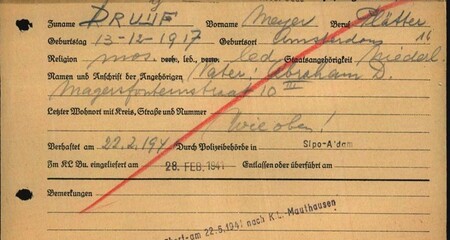 Zuname DRUIJF Vorname Meyer Beruf Plätter
Geburtstag 13-12-1917 Geburtsort Amsterdam 16
Religion mos. verh. led. verw. led Staatsangehörigkeit Niederl.
Namen und Anschrift der Angehörigen Vater: Abraham D.
Magersfonteinstraat 10 III
Letzter Wohnort mit Kreis, Straße und Nummer
Wie oben!
Verhaftet am 22.2.194 Durch Polizeibehörde in Sipo-A'dam
Im KL Bu. eingeliefert am 28. FEB. 1941 Entlassen oder überführt am
Bemerkungen
am 22.5.1941 nach K.L.-Mauthausen